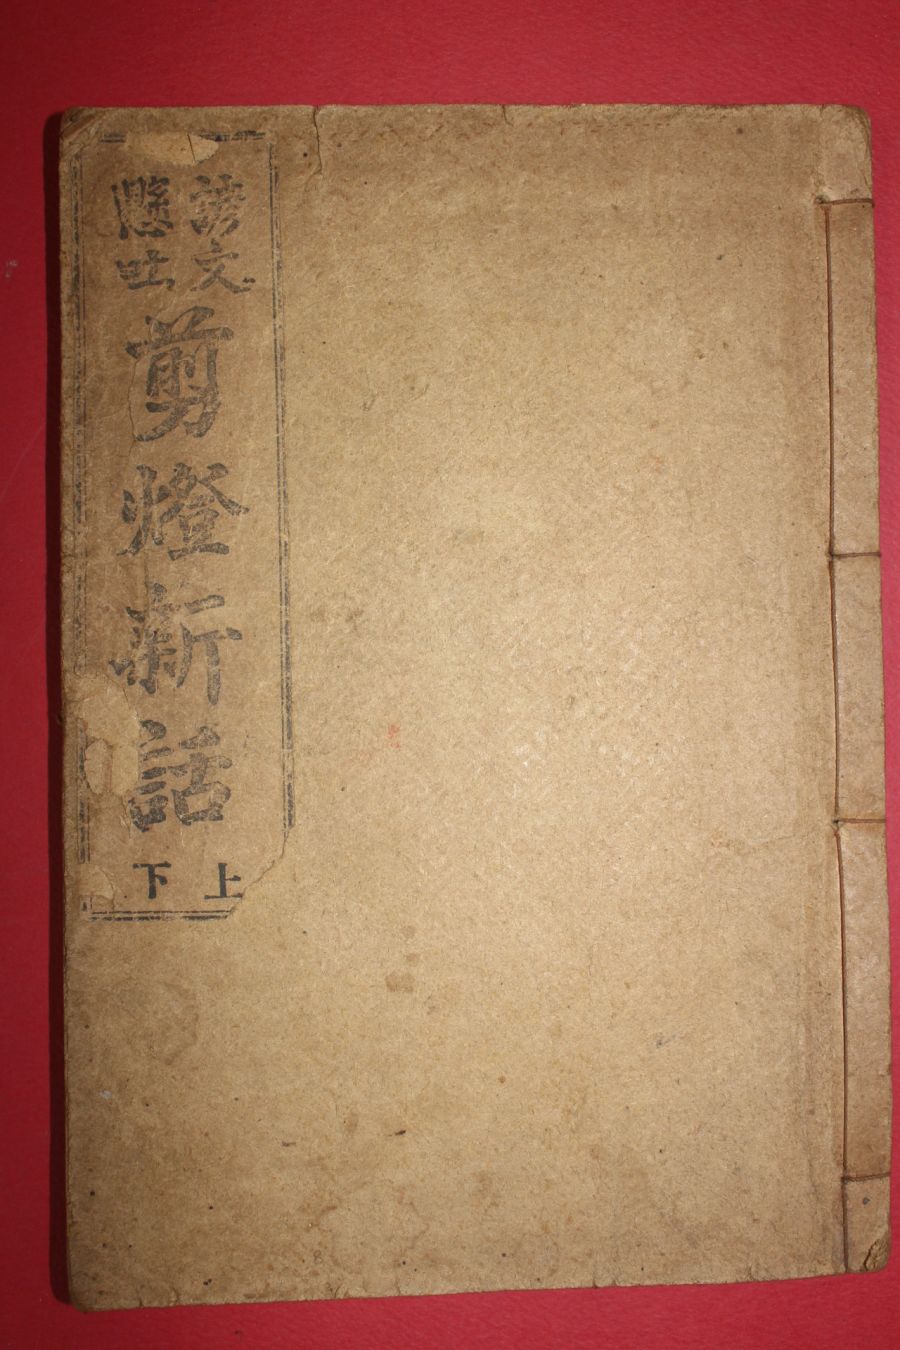 諺文
懸吐
剪燈新話
上
下